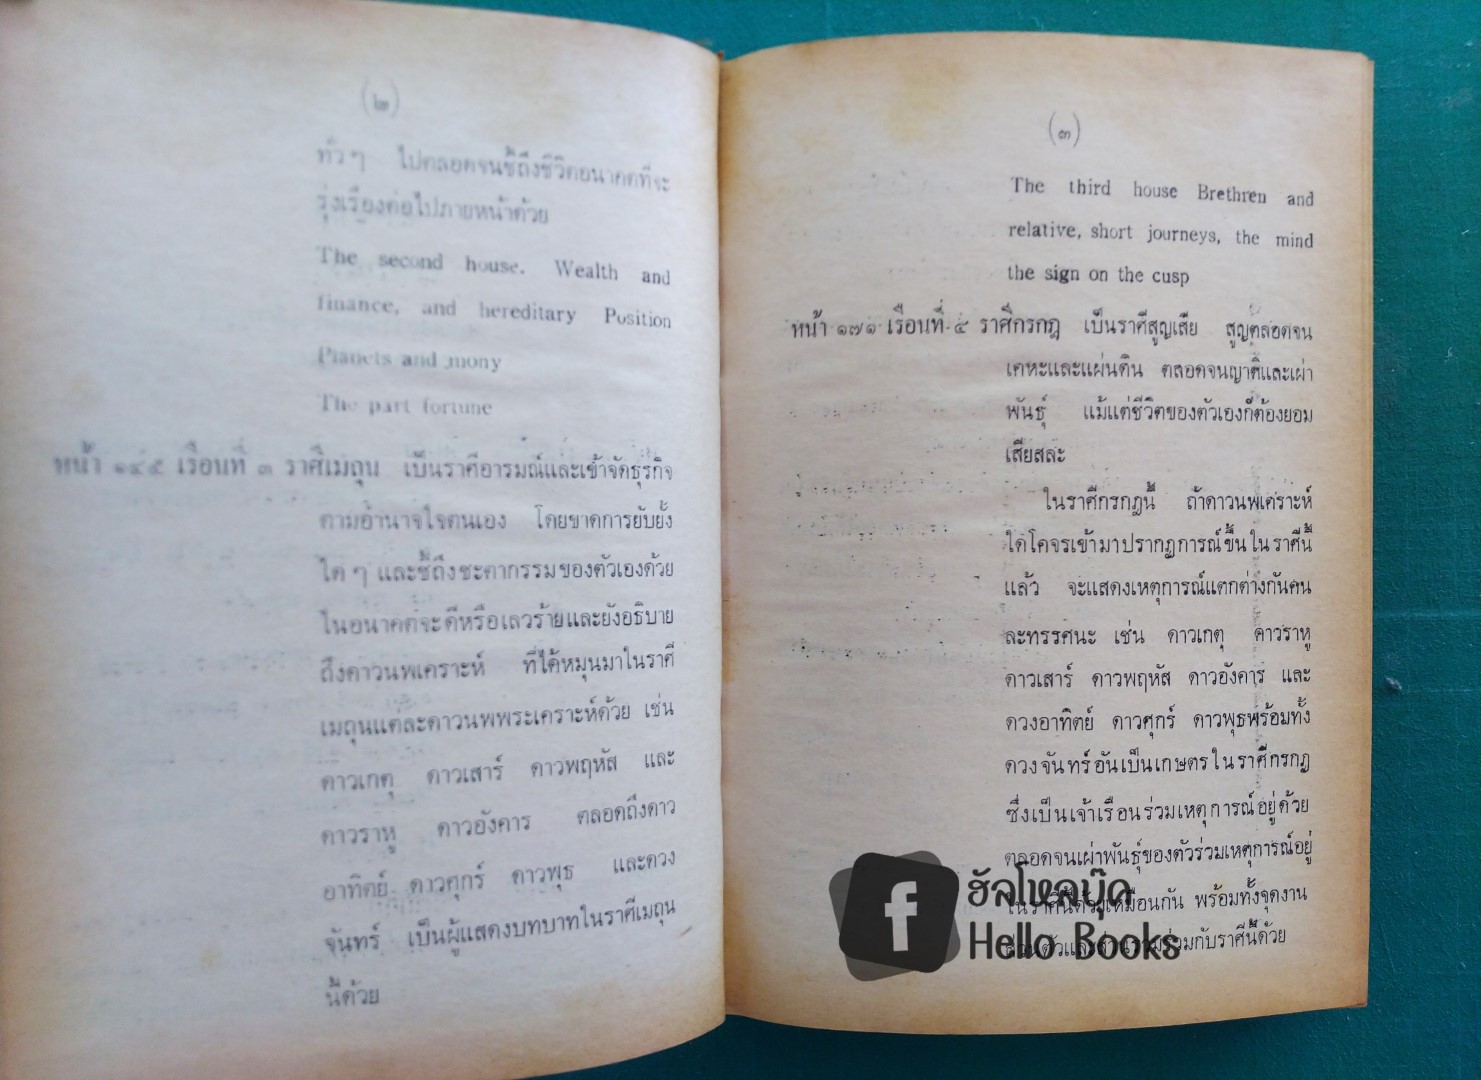 (๒)
ทั่วๆ ไปตลอดจนชี้ถึงชีวิตอนาคตที่จะ
รุ่งเรืองต่อไปภายหน้าด้วย
The second house. Wealth and
finance, and hereditary Position
Planets and mony
The part fortune
หน้า ๑๔๕ เรือนที่ ๓ ราศีเมถุน เป็นราศีอารมณ์และเข้าจัดธุรกิจ
ตามอำนาจใจตนเอง โดยขาดการยับยั้ง
ใดๆ และชี้ถึงชะตากรรมของตัวเองด้วย
ในอนาคตจะดีหรือเลวร้ายและยังอธิบาย
ถึงดาวนพเคราะห์ ที่ได้หมุนมาในราศี
เมถุนแต่ละดาวนพพระเคราะห์ด้วย เช่น
ดาวเกตุ ดาวเสาร์ ดาวพฤหัส และ
ดาวราหู ดาวอังคาร ตลอดถึงดาว
อาทิตย์ ดาวศุกร์ ดาวพุธ และดวง
จันทร์ เป็นผู้แสดงบทบาทในราศีเมถุน
นี้ด้วย
(๓)
The third house Brethren and
relative, short journeys, the mind
the sign on the cusp
หน้า ๑๗๑ เรือนที่ ๔ ราศีกรกฎ เป็นราศีสูญเสีย สูญตลอดจน
เคหะและแผ่นดิน ตลอดจนญาติและเผ่า
พันธุ์ แม้แต่ชีวิตของตัวเองก็ต้องยอม
เสียสละ
ในราศีกรกฎนี้ ถ้าดาวนพเคราะห์
ใดโคจรเข้ามาปรากฏการณ์ขึ้นในราศีนี้
แล้ว จะแสดงเหตุการณ์แตกต่างกันคน
ละทรรศนะ เช่น ดาวเกตุ ดาวราหู
ดาวเสาร์ ดาวพฤหัส ดาวอังคาร และ
ดวงอาทิตย์ ดาวศุกร์ ดาวพุธพร้อมทั้ง
ดวงจันทร์อันเป็นเกษตรในราศีกรกฎ
ซึ่งเป็นเจ้าเรือนร่วมเหตุการณ์อยู่ด้วย
ตลอดจนเผ่าพันธุ์ของตัวร่วมเหตุการณ์อยู่
ในราศีนี้ด้วยเหมือนกัน พร้อมทั้งจุดงาน
ส่วนตัวและส่วนรวมร่วมกับราศีนี้ด้วย
f
ฮัลโหลบุ๊ค
Hello Books